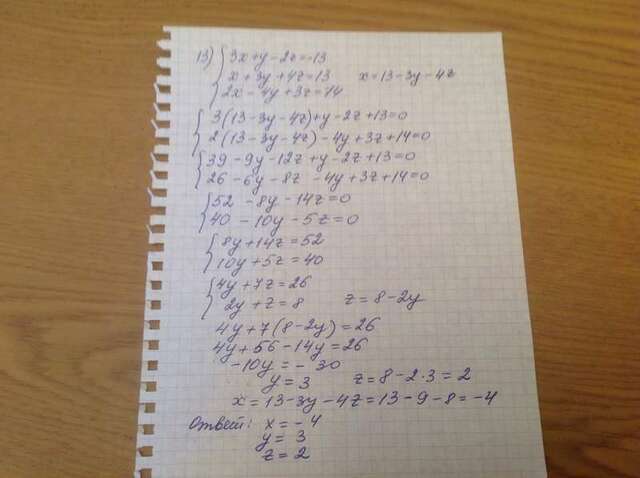 13) 3x+y-2z=-13
x+3y+4z=13 x=13-3y-4z
2x-4y+3z=-14
3(13-3y-4z)+y-2z+13=0
2(13-3y-4z)-4y+3z+14=0
39-9y-12z+y-2z+13=0
26-6y-8z-4y+3z+14=0
52-8y-14z=0
40-10y-5z=0
8y+14z=52
10y+5z=40
4y+7z=26
2y+z=8 z=8-2y
4y+7(8-2y)=26
4y+56-14y=26
-10y=-30
y=3 z=8-2·3=2
x=13-3y-4z=13-9-8=-4
Ответ: x=-4
y=3
z=2